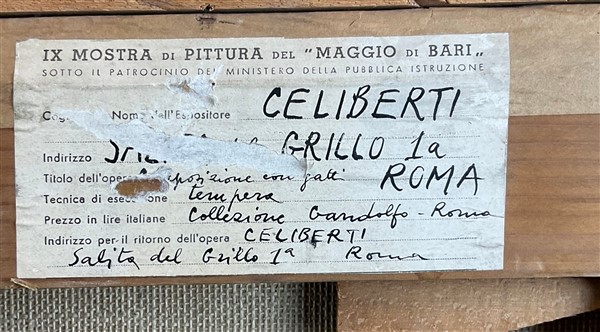 IX MOSTRA DI PITTURA DEL "MAGGIO DI BARI„
SOTTO IL PATROCINIO DEL MINISTERO DELLA PUBBLICA ISTRUZIONE
Nome dell'Espositore CELIBERTI
Indirizzo GRILLO 1a
Titolo dell'opera con gatti ROMA
Tecnica di tempera
Prezzo in lire italiane Collezione Gandolfo - Roma
Indirizzo per il ritorno dell'opera CELIBERTI
Salita del Grillo 1ª Roma